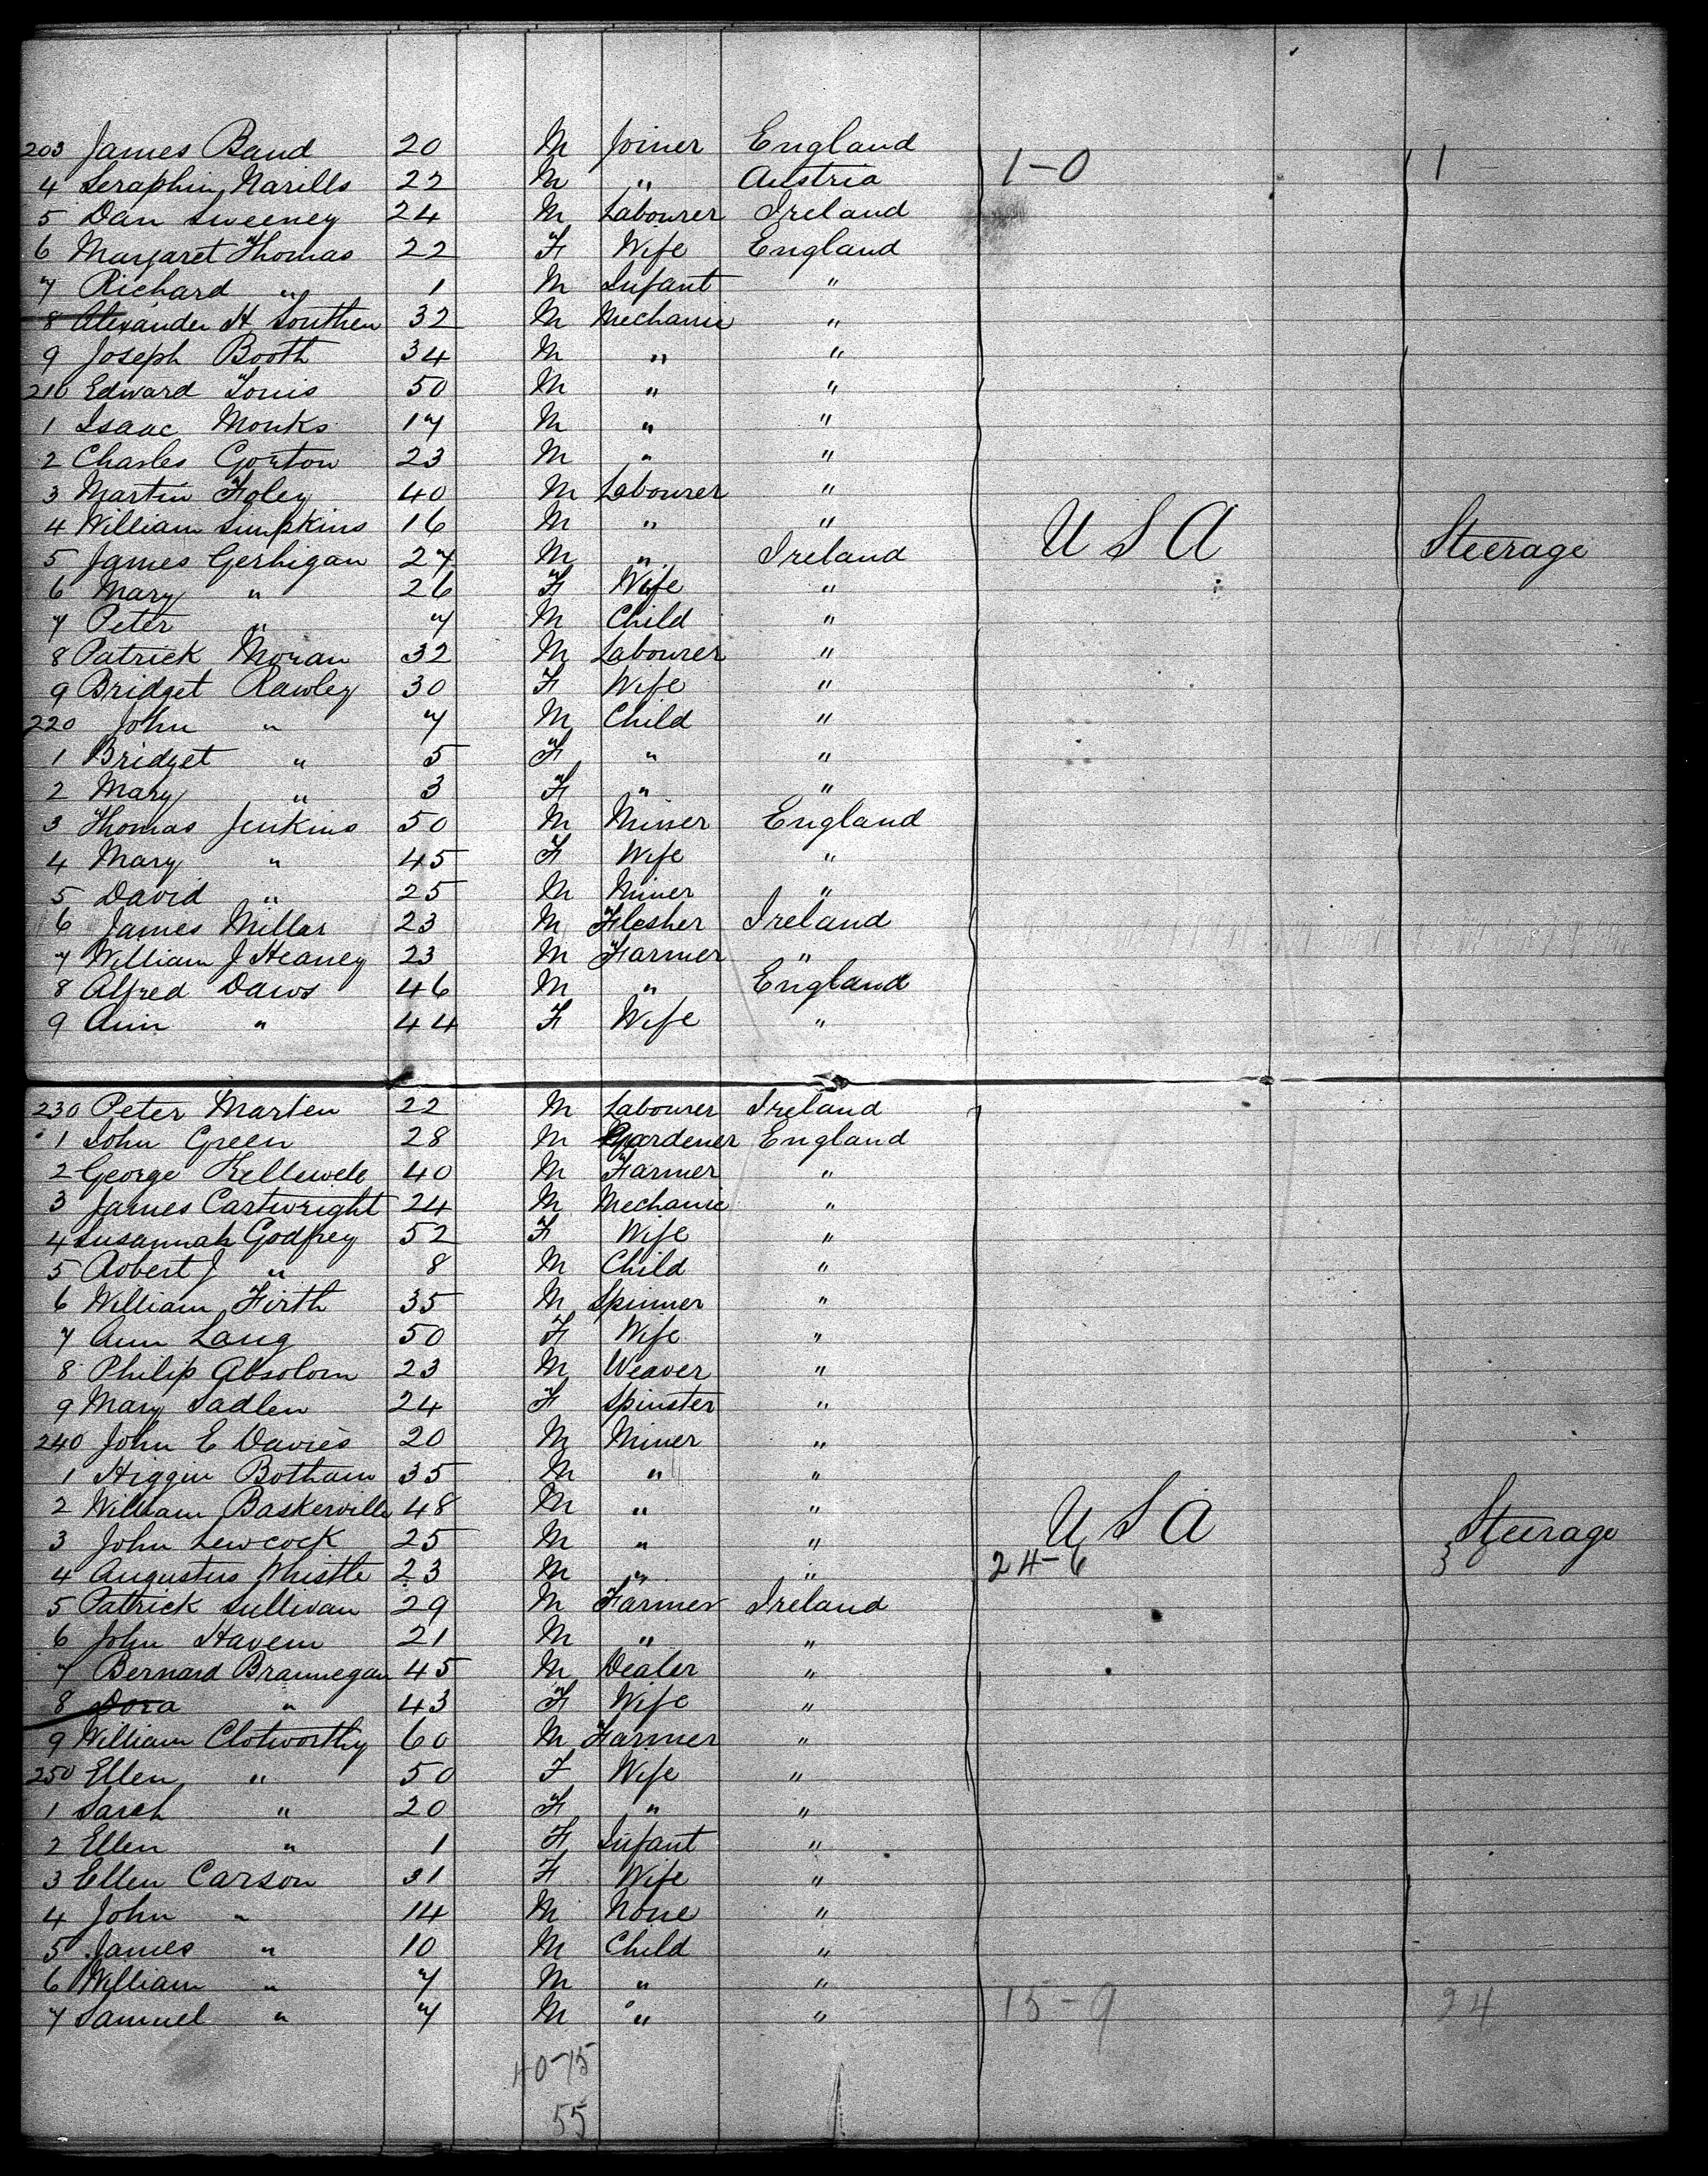 203 James Baud 20 M Joiner England
1-0 1
4 Seraphin Narills 22 M " Austria
5 Dan Sweeney 24 M Labourer Ireland
6 Margaret Thomas 22 F Wife England
7 Richard " 1 M Infant "
8 Alexander H Southern 32 M Mechanic "
9 Joseph Booth 34 M " "
210 Edward Louis 50 M " "
1 Isaac Monks 17 M " "
2 Charles Gorton 23 M " "
3 Martin Foley 40 M Labourer "
4 William Simpkins 16 M " "
5 James Gerhigan 27 M " Ireland USA Steerage
6 Mary " 26 F Wife "
7 Peter " 7 M Child "
8 Patrick Moran 32 M Labourer "
9 Bridget Rawley 30 F Wife "
220 John " 7 M Child "
1 Bridget " 5 F " "
2 Mary " 3 F " "
3 Thomas Jenkins 50 M Miner England
4 Mary " 45 F Wife "
5 David " 25 M Miner "
6 James Millar 23 M Flesher Ireland
7 William J Heaney 23 M Farmer "
8 Alfred Daws 46 M " England
9 Ann " 44 F Wife "
230 Peter Marten 22 M Labourer Ireland
1 John Green 28 M Gardener England
2 George Kellewele 40 M Farmer "
3 James Cartwright 24 M Mechanic "
4 Susannah Godfrey 52 F Wife "
5 Robert J " 8 M Child "
6 William Firth 35 M Spinner "
7 Ann Lang 50 F Wife "
8 Philip Absolom 23 M Weaver "
9 Mary Sadlen 24 F Spinster "
240 John E Davies 20 M Miner "
1 Higgin Botham 35 M " "
2 William Baskerville 48 M " "
3 John Lewcock 25 M " " USA Steerage
4 Augustus Whistle 23 M " " 24-6 3
5 Patrick Sullivan 29 M Farmer Ireland
6 John Havem 21 M " "
7 Bernard Brannegan 45 M Dealer "
8 Dora " 43 F Wife "
9 William Clotworthy 60 M Farmer "
250 Ellen " 50 F Wife "
1 Sarah " 20 F " "
2 Ellen " 1 F Infant "
3 Ellen Carson 31 F Wife "
4 John " 14 M None "
5 James " 10 M Child "
6 William " 7 M " "
7 Samuel " 7 M " " 15-9 24
40-15
55